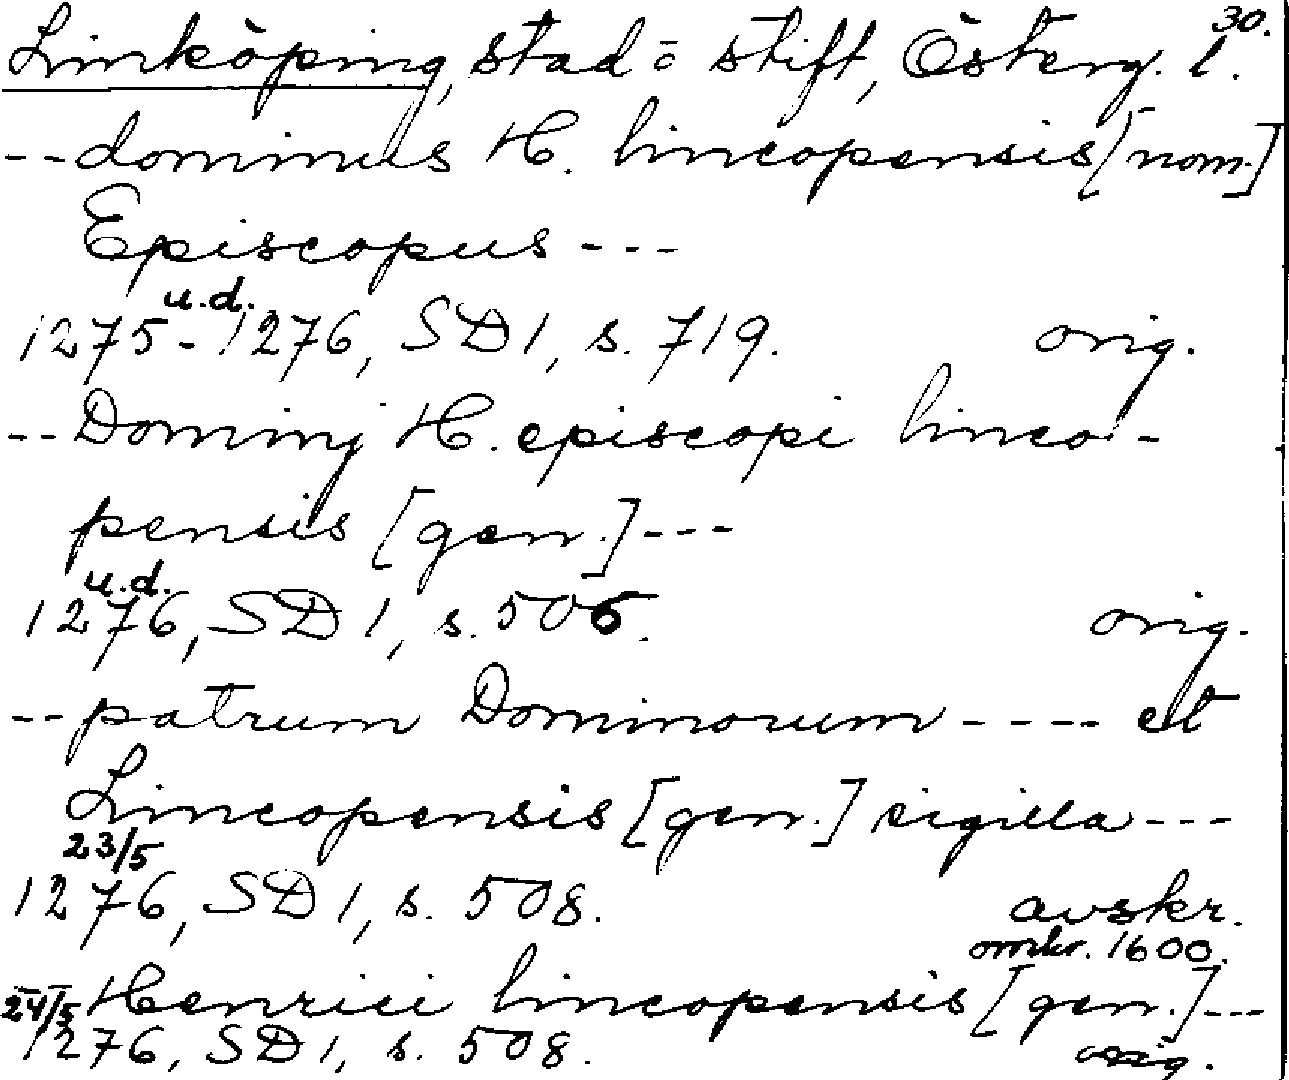 30.
Linköping, stad o stift, Österg. l.
-- dominus H. lincopensis [nom.]
Episcopus ---
u.d.
1275-1276, SD 1, s. 719. orig.
-- Dominj H. episcopi linco-
pensis [gen.] ---
u.d.
1276, SD 1, s. 506. orig.
-- patrum Dominorum ---- et
Lincopensis [gen.] sigilla ---
23/5
1276, SD 1, s. 508. avskr.
omkr. 1600.
24/5 Henrici lincopensis [gen.] ---
1276, SD 1, s. 508. orig.